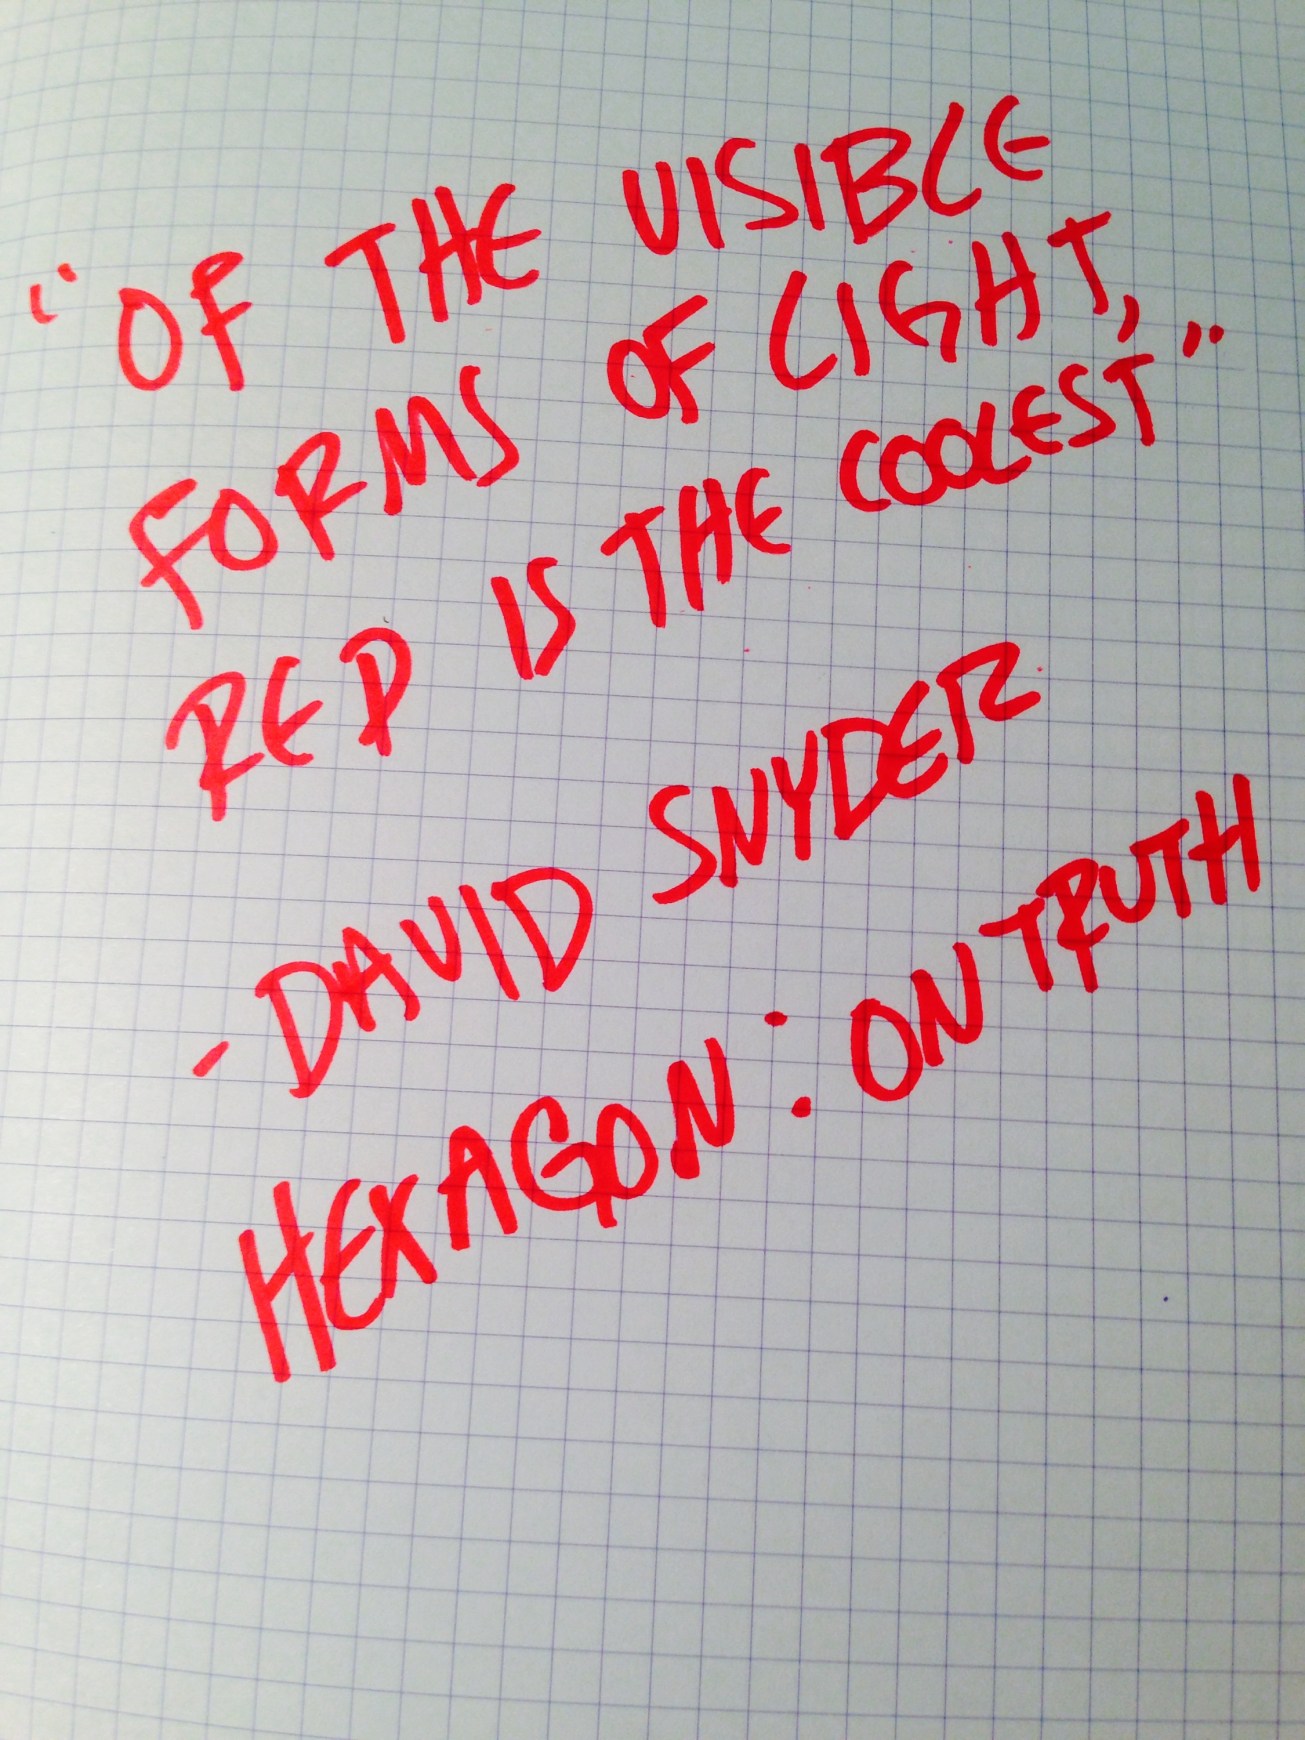 "OF THE VISIBLE
FORMS OF LIGHT,
RED IS THE COOLEST"
- DAVID SNYDER
HEXAGON: ON TRUTH